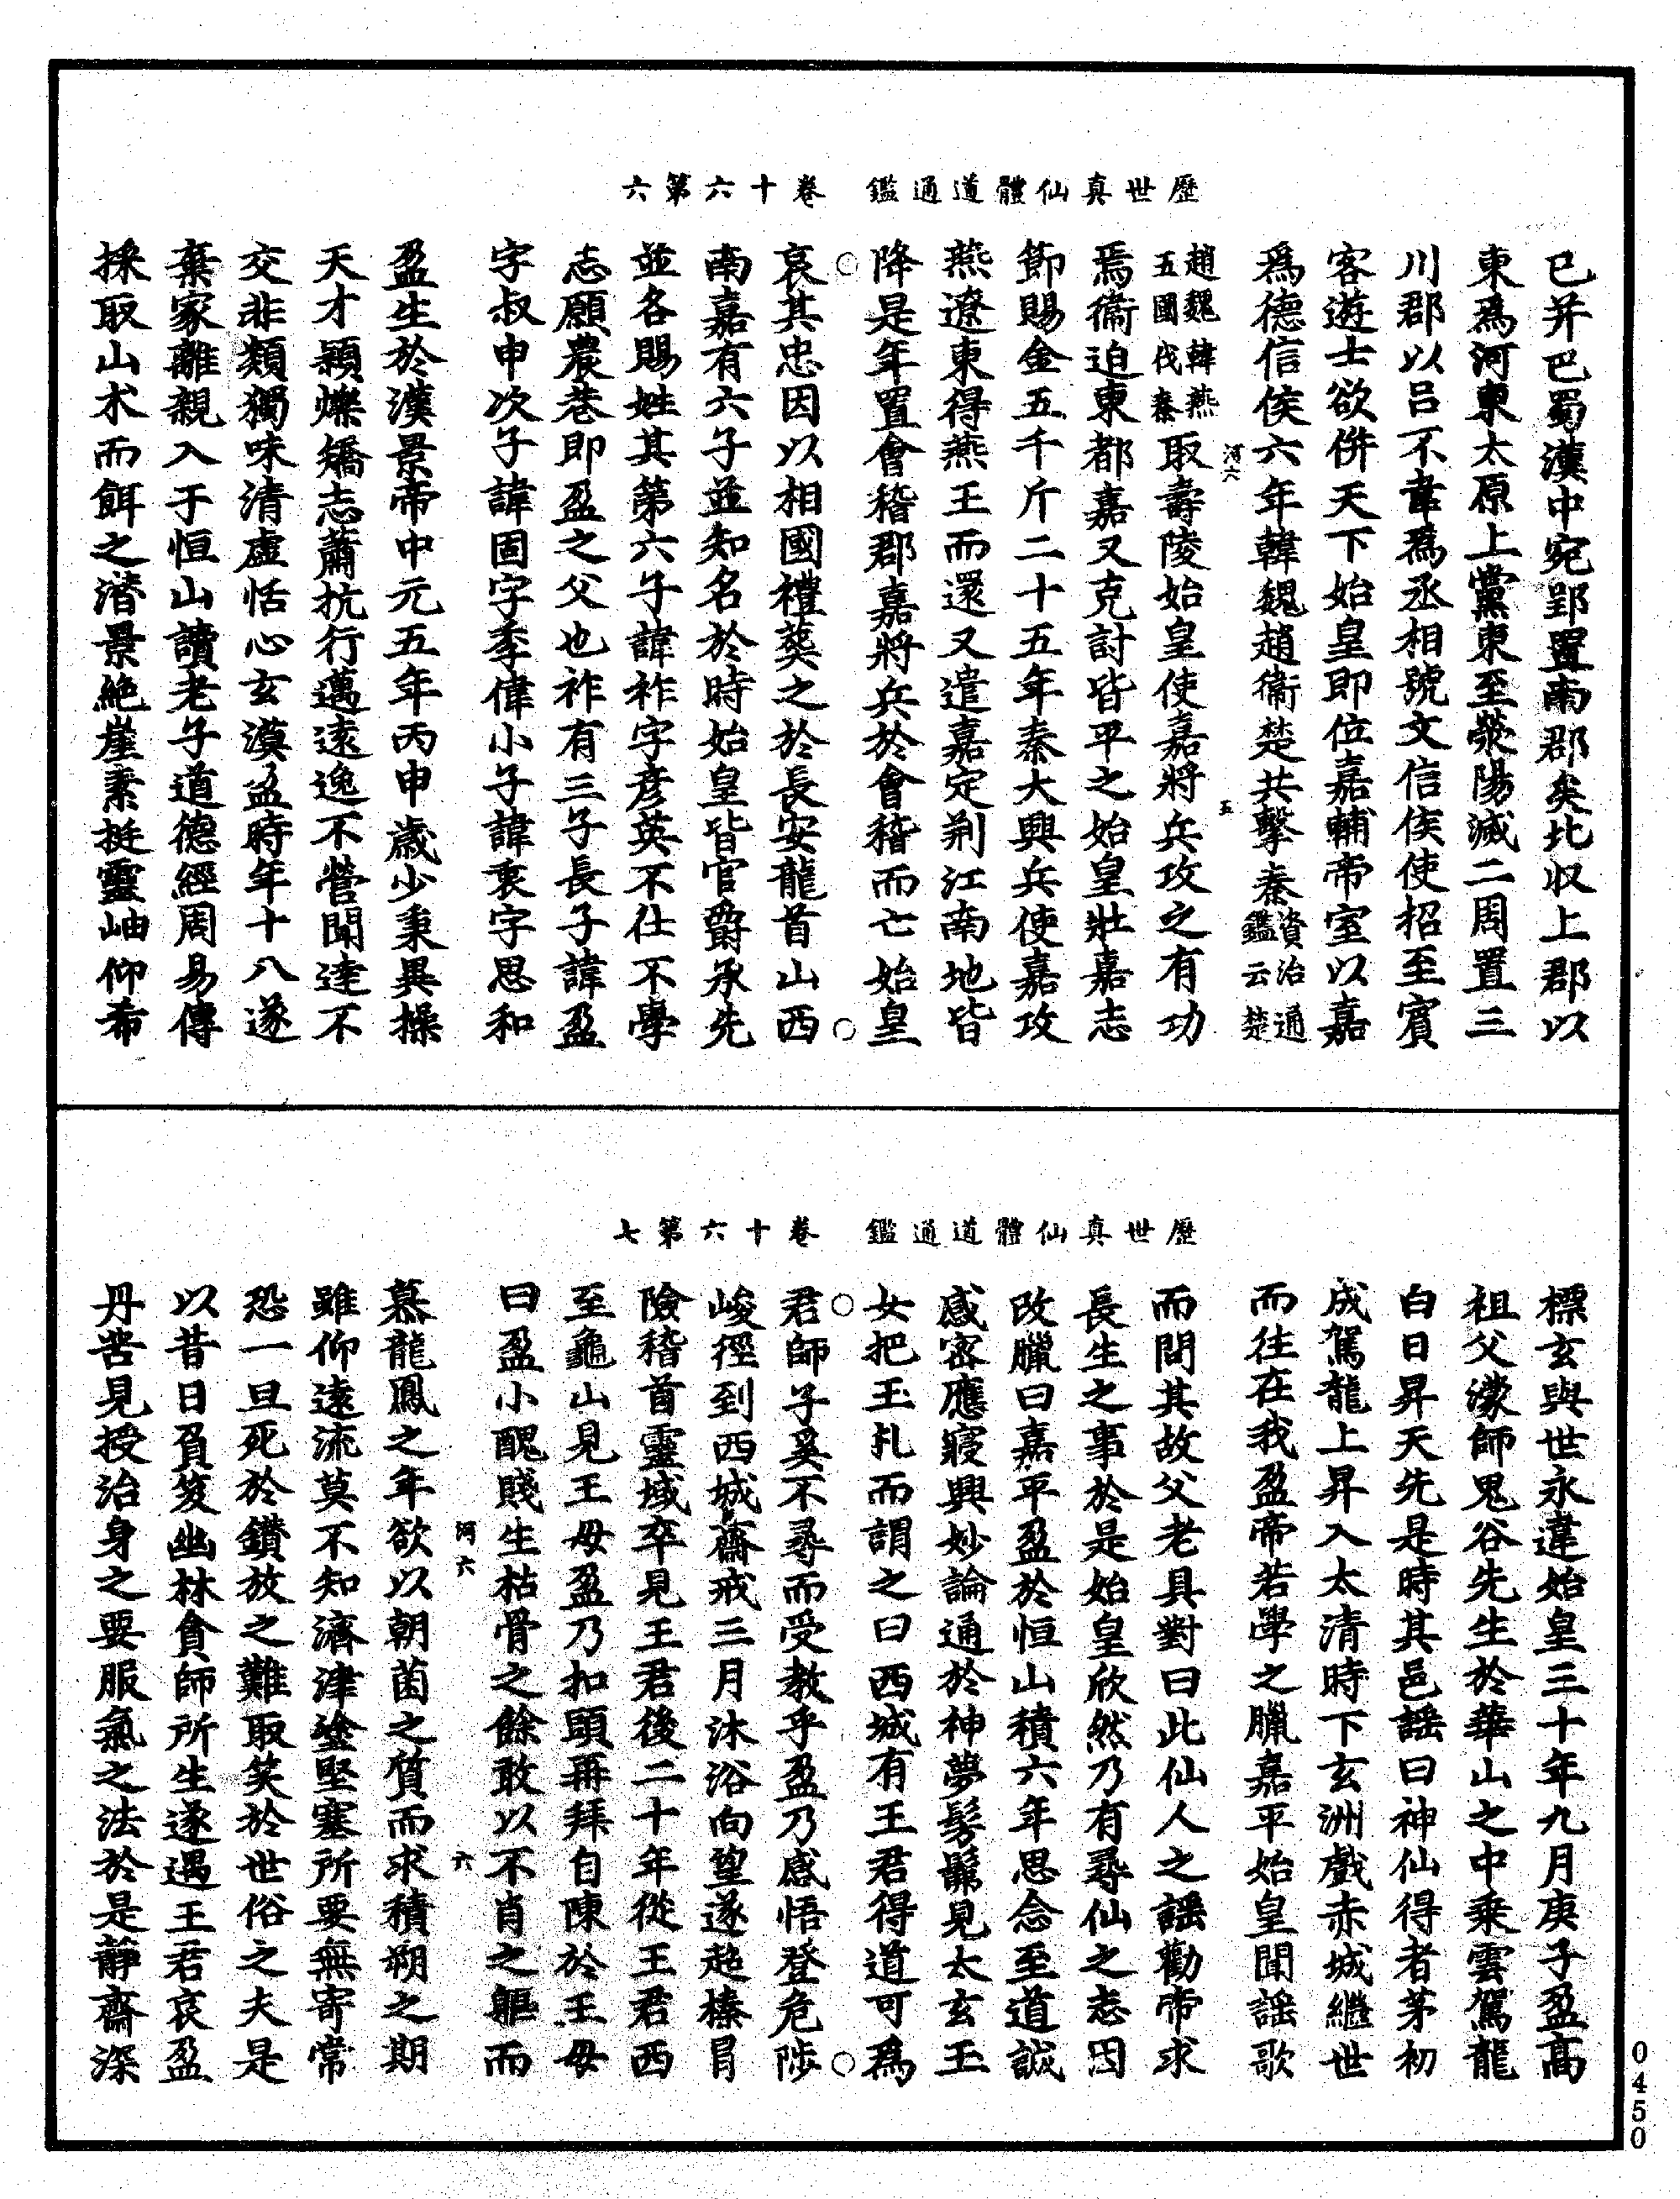 歷世真仙體道通鑑　卷十六第六
已并巴蜀漢中宛郢置南郡矣北収上郡以
東為河東太原上黨東至滎陽滅二周置三
川郡以呂不韋為丞相號文信侯使招至賓
客遊士欲併天下始皇即位嘉輔帝室以嘉
為德信侯六年韓魏趙衞楚共擊秦資治通鑑云楚
河六　五
趙魏韓燕五國伐秦取壽陵始皇使嘉將兵攻之有功
焉衞迫東都嘉又克討皆平之始皇壯嘉志
節賜金五千斤二十五年秦大興兵使嘉攻
燕遼東得燕王而還又遣嘉定荆江南地皆
降是年置會稽郡嘉將兵於會稽而亡始皇
哀其忠因以相國禮葬之於長安龍首山西
南嘉有六子並知名於時始皇皆官爵承先
並各賜姓其第六子諱祚字彦英不仕不學
志願農巷即盈之父也祚有三子長子諱盈
字叔申次子諱固字季偉小子諱衷字思和
盈生於漢景帝中元五年丙申歲少秉異操
天才穎爍矯志蕭抗行邁遠逸不營聞達不
交非類獨味清虛恬心玄漠盈時年十八遂
棄家離親入于恒山讀老子道德經周易傳
採取山术而餌之潛景絶崖素挺靈岫仰希
歷世真仙體道通鑑　卷十六第七
標玄與世永違始皇三十年九月庚子盈高
祖父濛師鬼谷先生於華山之中乗雲駕龍
白日昇天先是時其邑謡曰神仙得者茅初
成駕龍上昇入太清時下玄洲戲赤城繼世
而往在我盈帝若學之臘嘉平始皇聞謡歌
而問其故父老具對曰此仙人之謡勸帝求
長生之事於是始皇欣然乃有尋仙之志因
改臘曰嘉平盈於恒山積六年思念至道誠
感密應寢興妙論通於神夢髣髴見太玄玉
女把玉扎而謂之曰西城有王君得道可為
君師子奚不尋而受教乎盈乃感悟登危陟
峻徑到西城齋戒三月沐浴向望遂超榛冒
險稽首靈域卒見王君後二十年從王君西
至龜山見王母盈乃扣頭再拜自陳於王母
曰盈小醜賤生枯骨之餘敢以不肖之軀而
河六　六
慕龍鳳之年欲以朝菌之質而求積朔之期
雖仰遠流莫不知濟津塗堅塞所要無寄常
恐一旦死於鑽放之難取笑於世俗之夫是
以昔日負笈幽林貪師所生遂遇王君哀盈
丹苦見授治身之要服氣之法於是靜齋深
0450